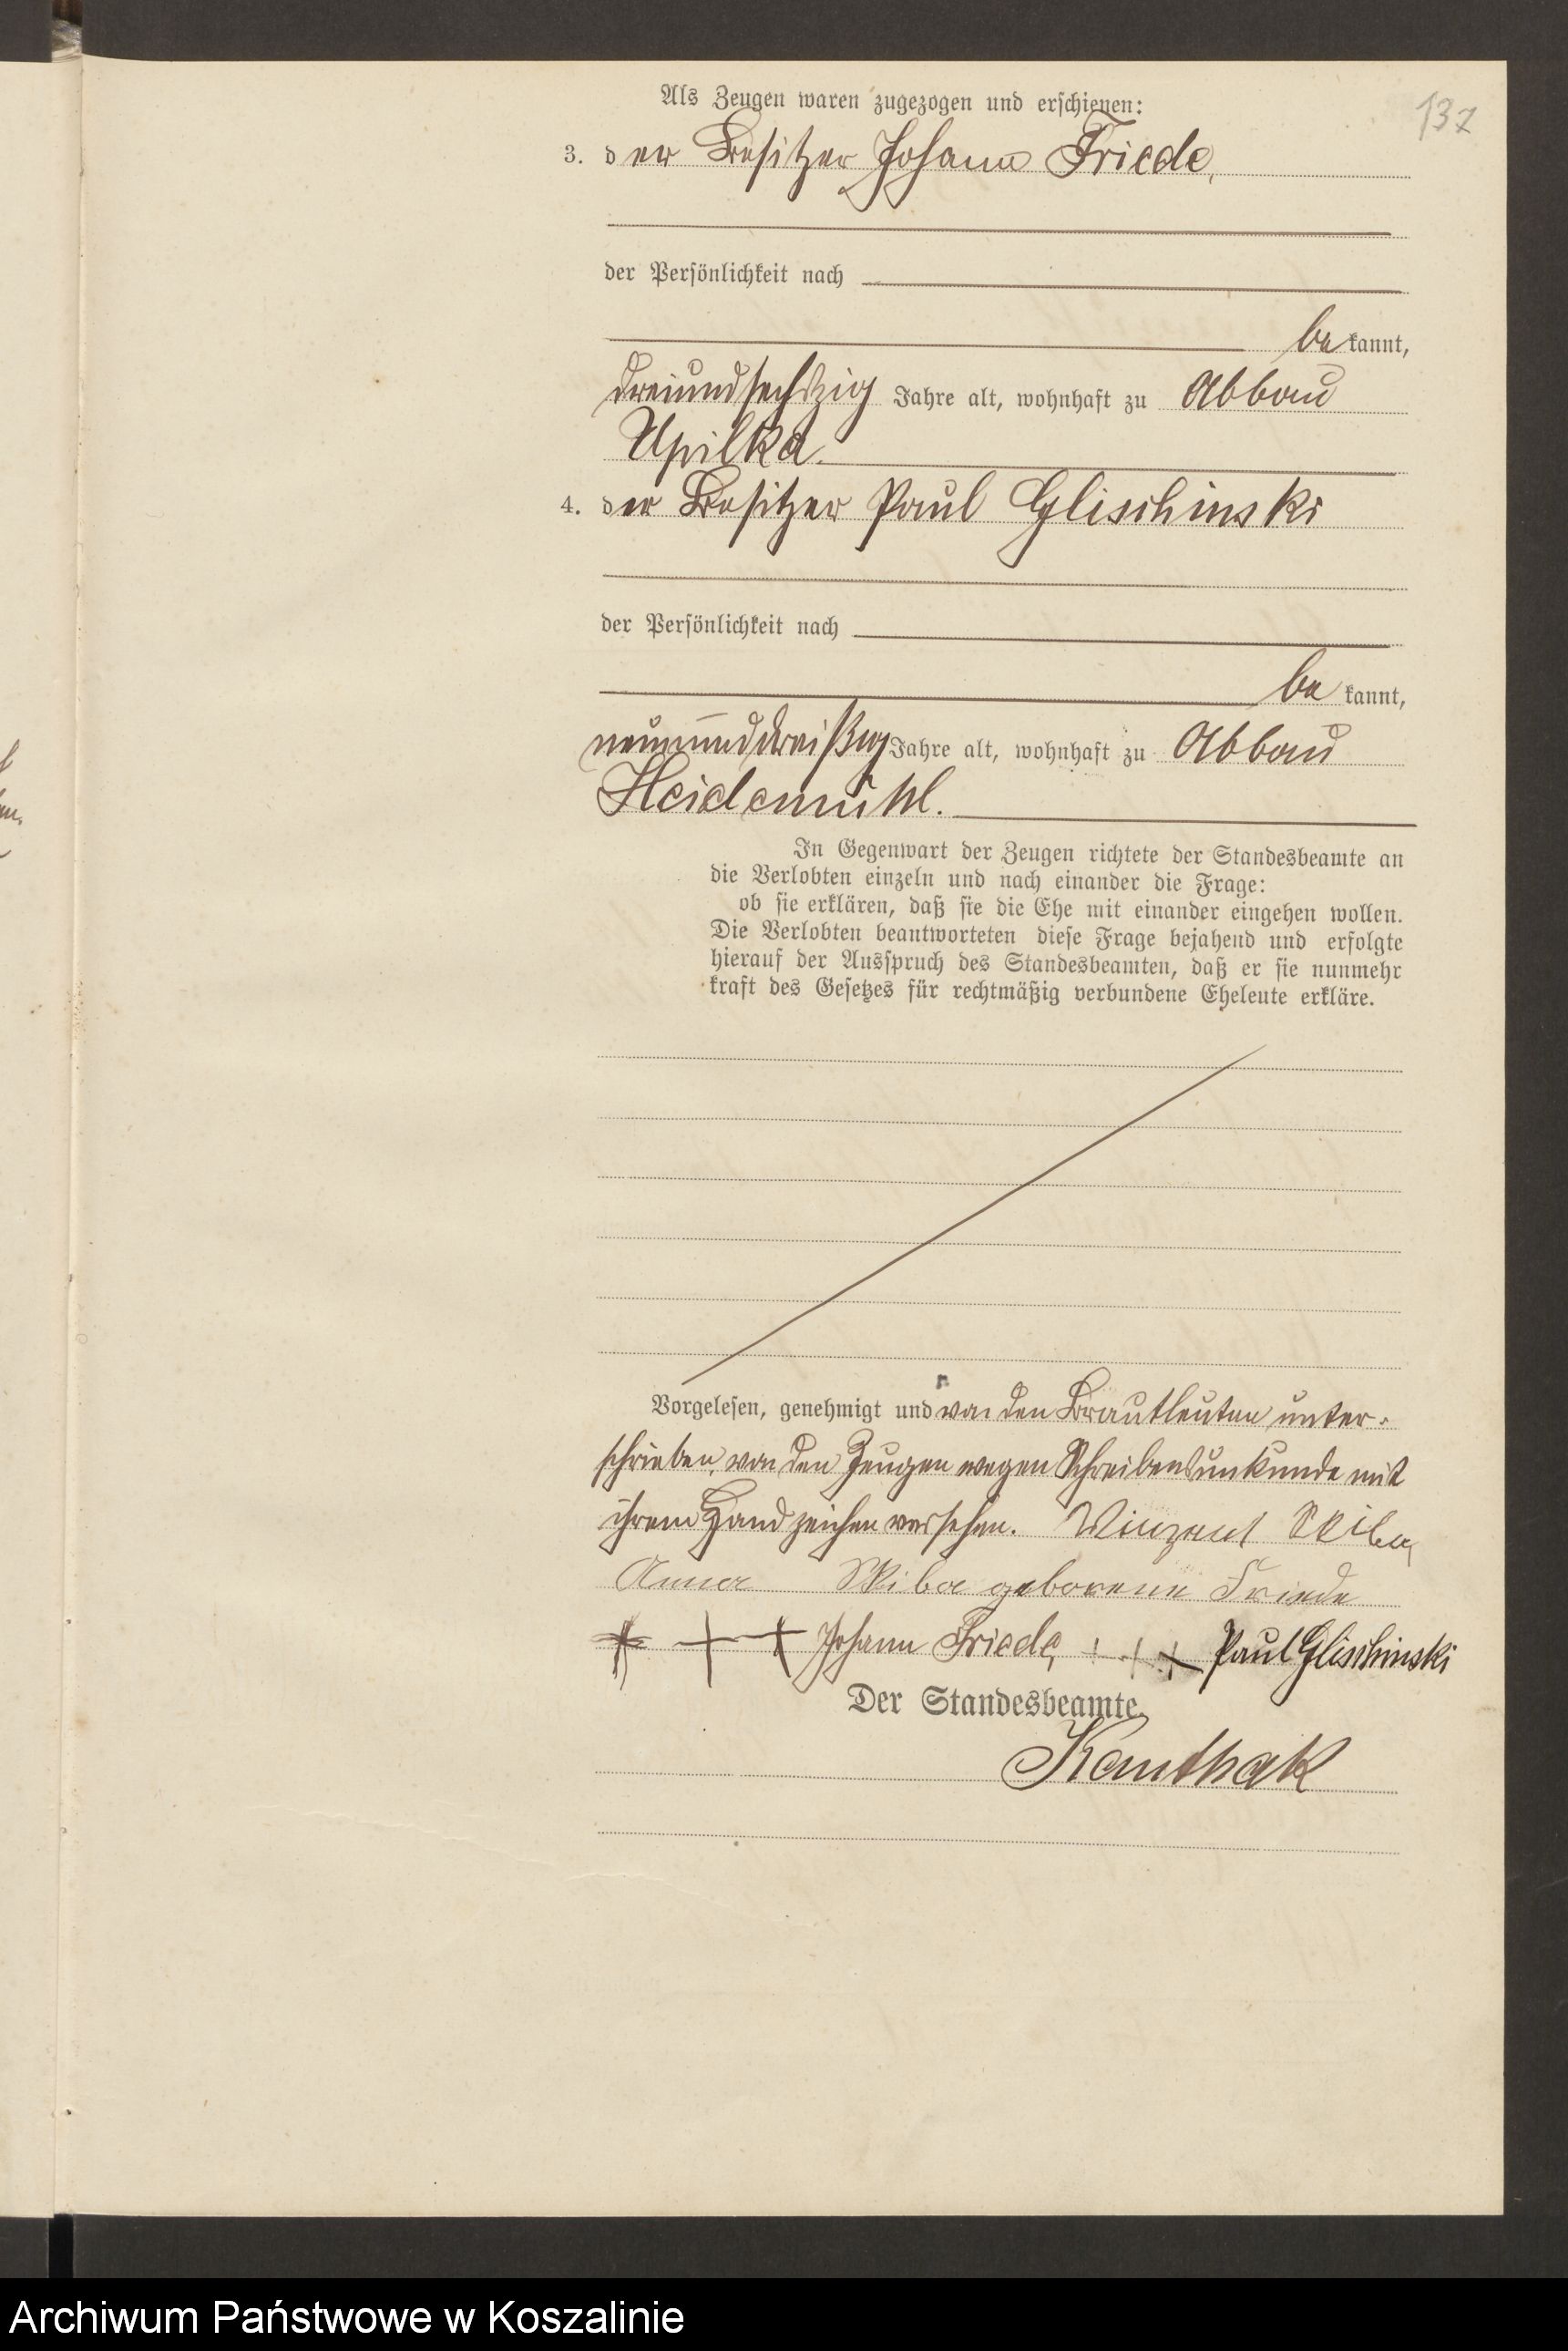 137
Als Zeugen waren zugezogen und erschienen:
3. der Besitzer Johann Friede,
der Persönlichkeit nach
bekannt,
dreiundsechszig Jahre alt, wohnhaft zu Abbau
Upilka.
4. der Besitzer Paul Glischinski
der Persönlichkeit nach
be kannt,
neununddreißig Jahre alt, wohnhaft zu Abbau
Heidemühl.
In Gegenwart der Zeugen richtete der Standesbeamte an
die Verlobten einzeln und nach einander die Frage:
ob sie erklären, daß sie die Ehe mit einander eingehen wollen.
Die Verlobten beantworteten diese Frage bejahend und erfolgte
hierauf der Ausspruch des Standesbeamten, daß er sie nunmehr
kraft des Gesetzes für rechtmäßig verbundene Eheleute erkläre.
Vorgelesen, genehmigt und von den Brautleuten unter-
schrieben, von den Zeugen wegen Schreibensunkunde mit
ihrem Handzeichen versehen. Vinzent Skiba
Anna Skiba geborene Friede
+ + + Johann Friede, + + + Paul Glischinski
Der Standesbeamte.
Kanthak
Archiwum Państwowe w Koszalinie